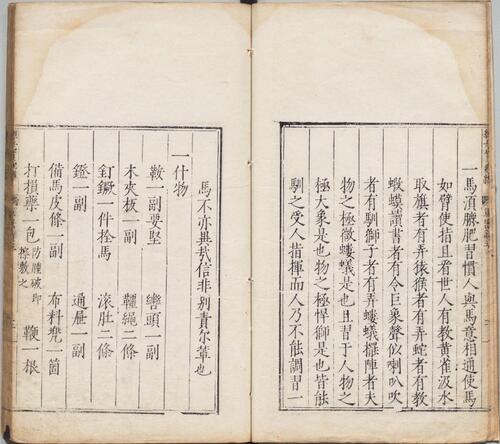 一馬湏臕肥習慣人與馬意相通使馬
如臂使指且看世人有教黃雀汲水
取旗者有弄猿猴者有弄蛇者有教
蝦蟆讀書者有令巨象聲似喇叭吹
者有馴獅子者有弄螻蟻擺陣者夫
物之極微螻蟻是也且習于人物之
極大象是也物之極悍獅是也皆能
馴之受人指揮而人乃不能調習一
馬不亦異哉信非别責尔輩也
一什物
鞍一副要堅 轡頭一副
木夾板一副 韁繩二條
釘鐝一件拴馬 滚肚二條
鐙一副 逼靻一副
備馬皮條一副 布料兠一箇
打損藥一包 防腫破即擦敷之 鞭一根